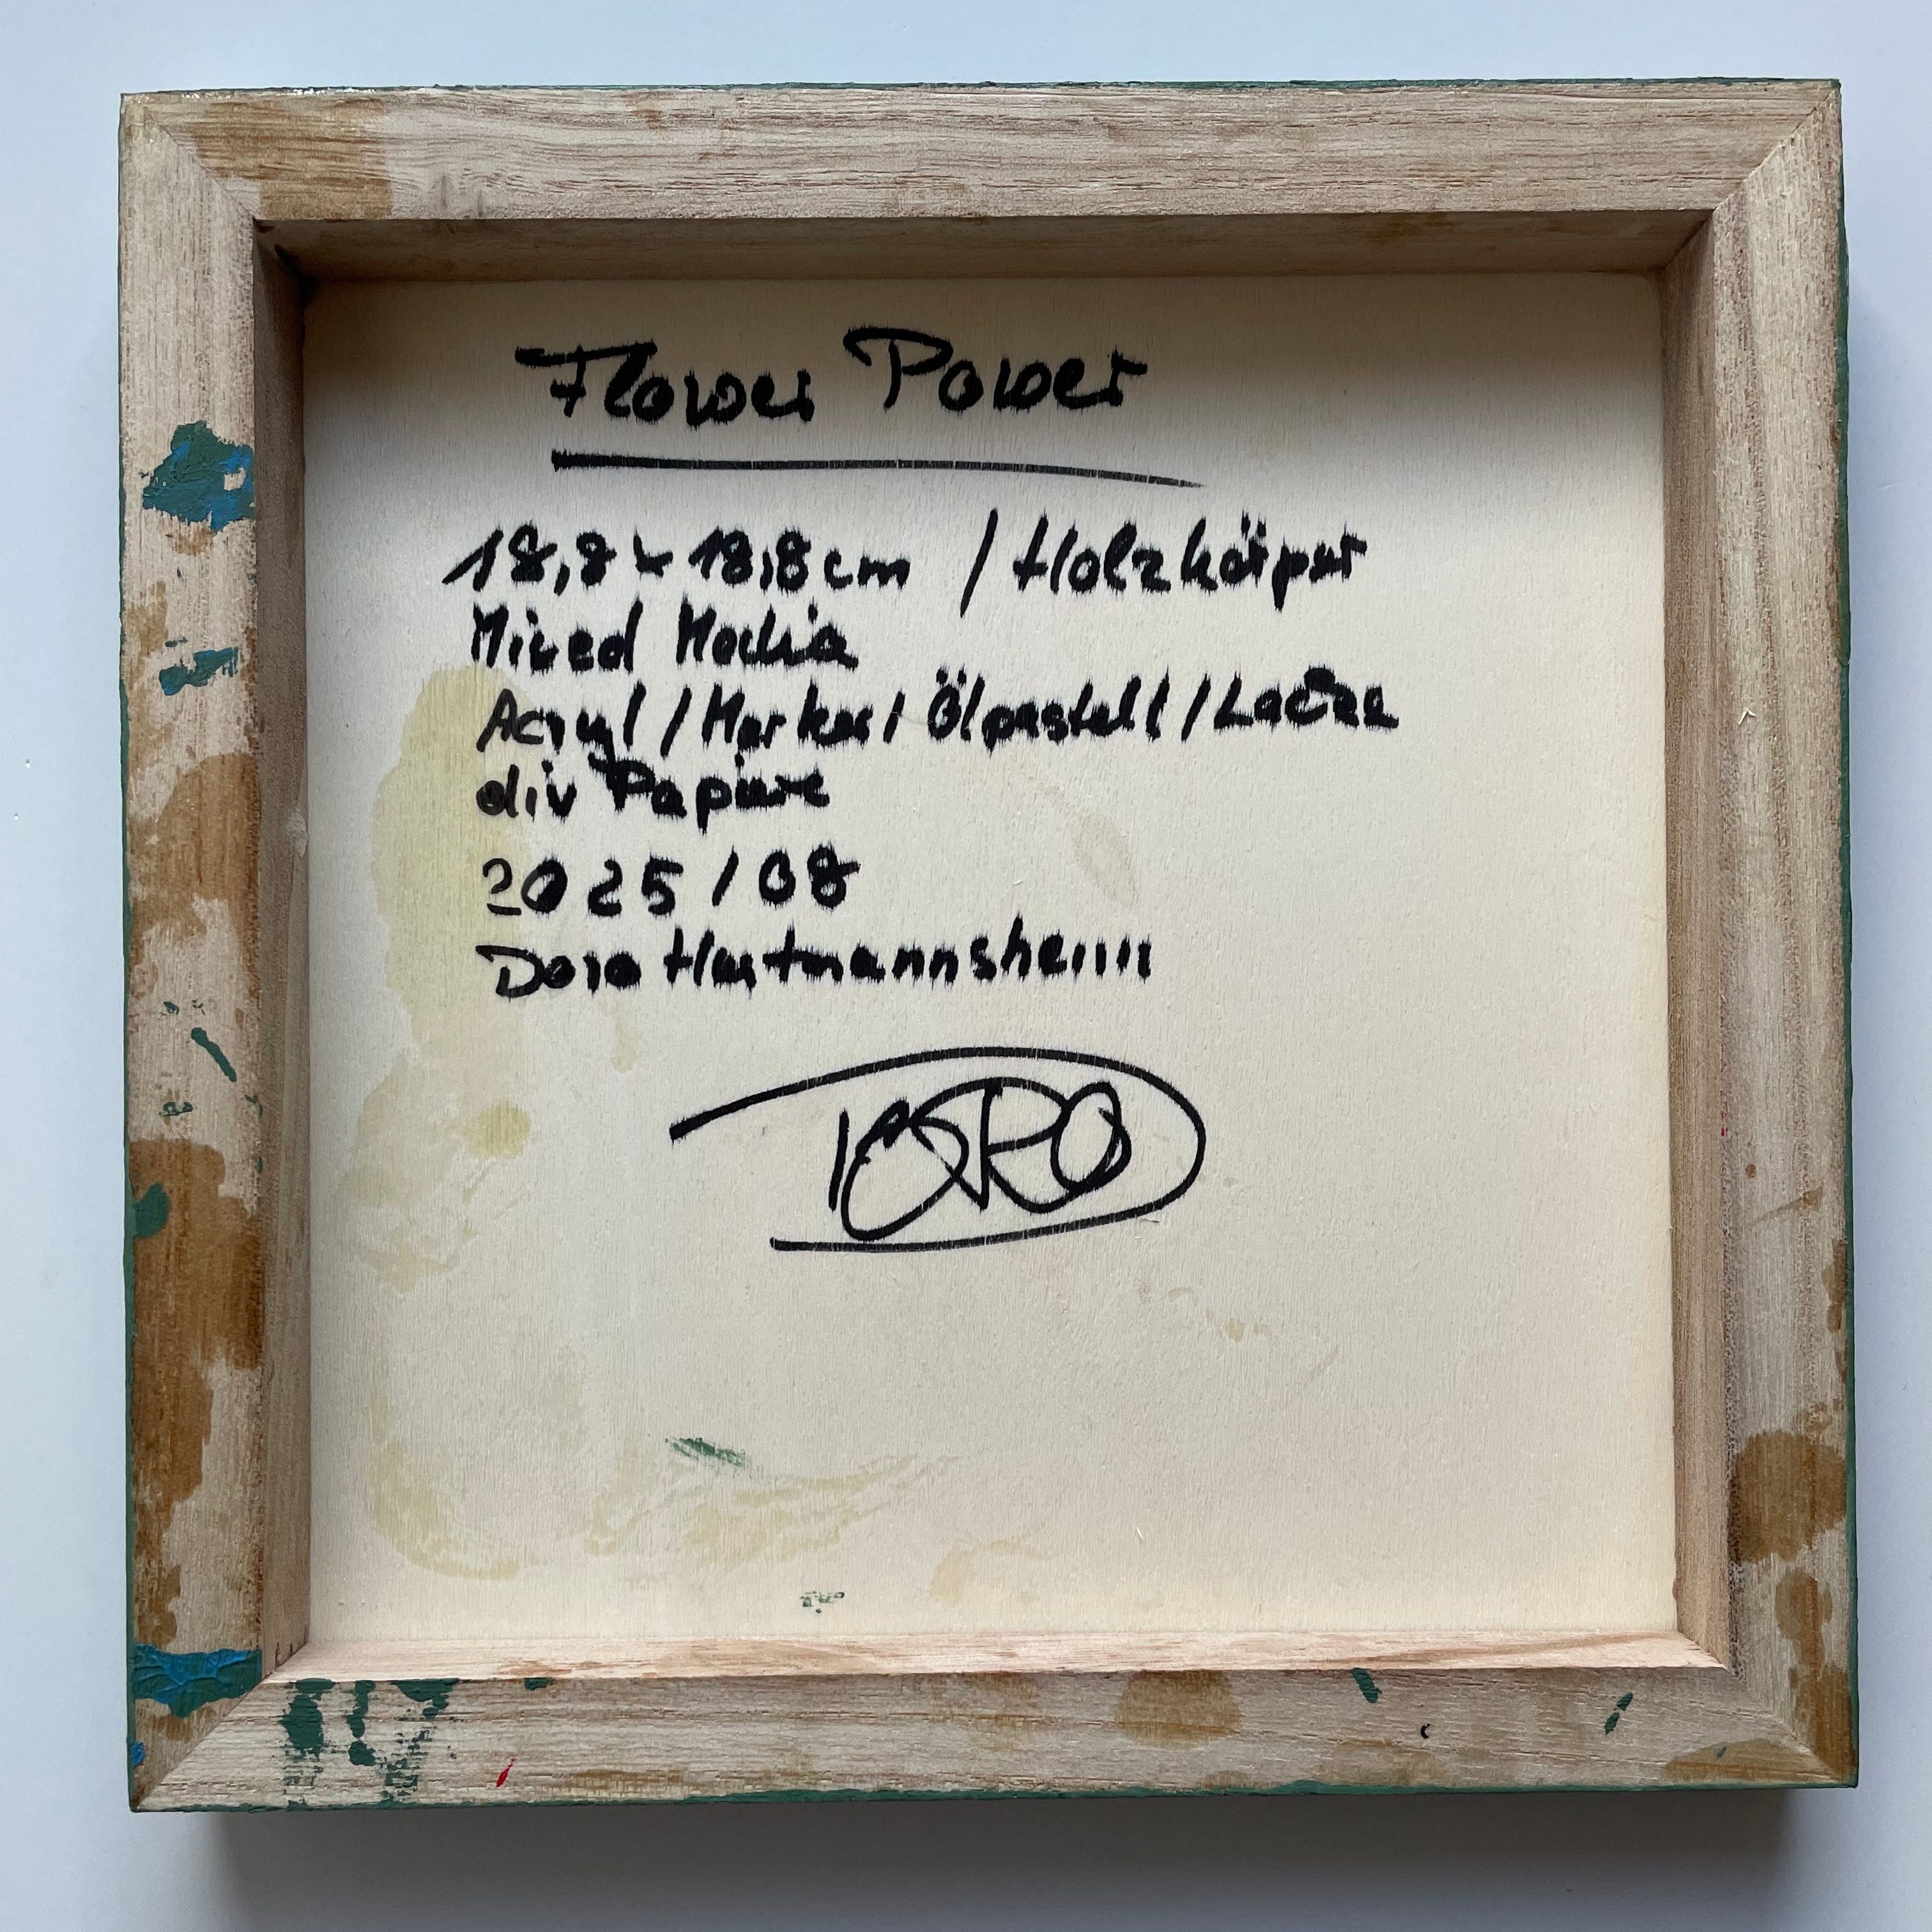 Flower Power
18,8 x 18,8 cm / Holzkörper
Mixed Media
Acryl / Marker / Ölpastell / Lacke
div Papiere
2025 / 08
Doro Hartmannshenn
DORO